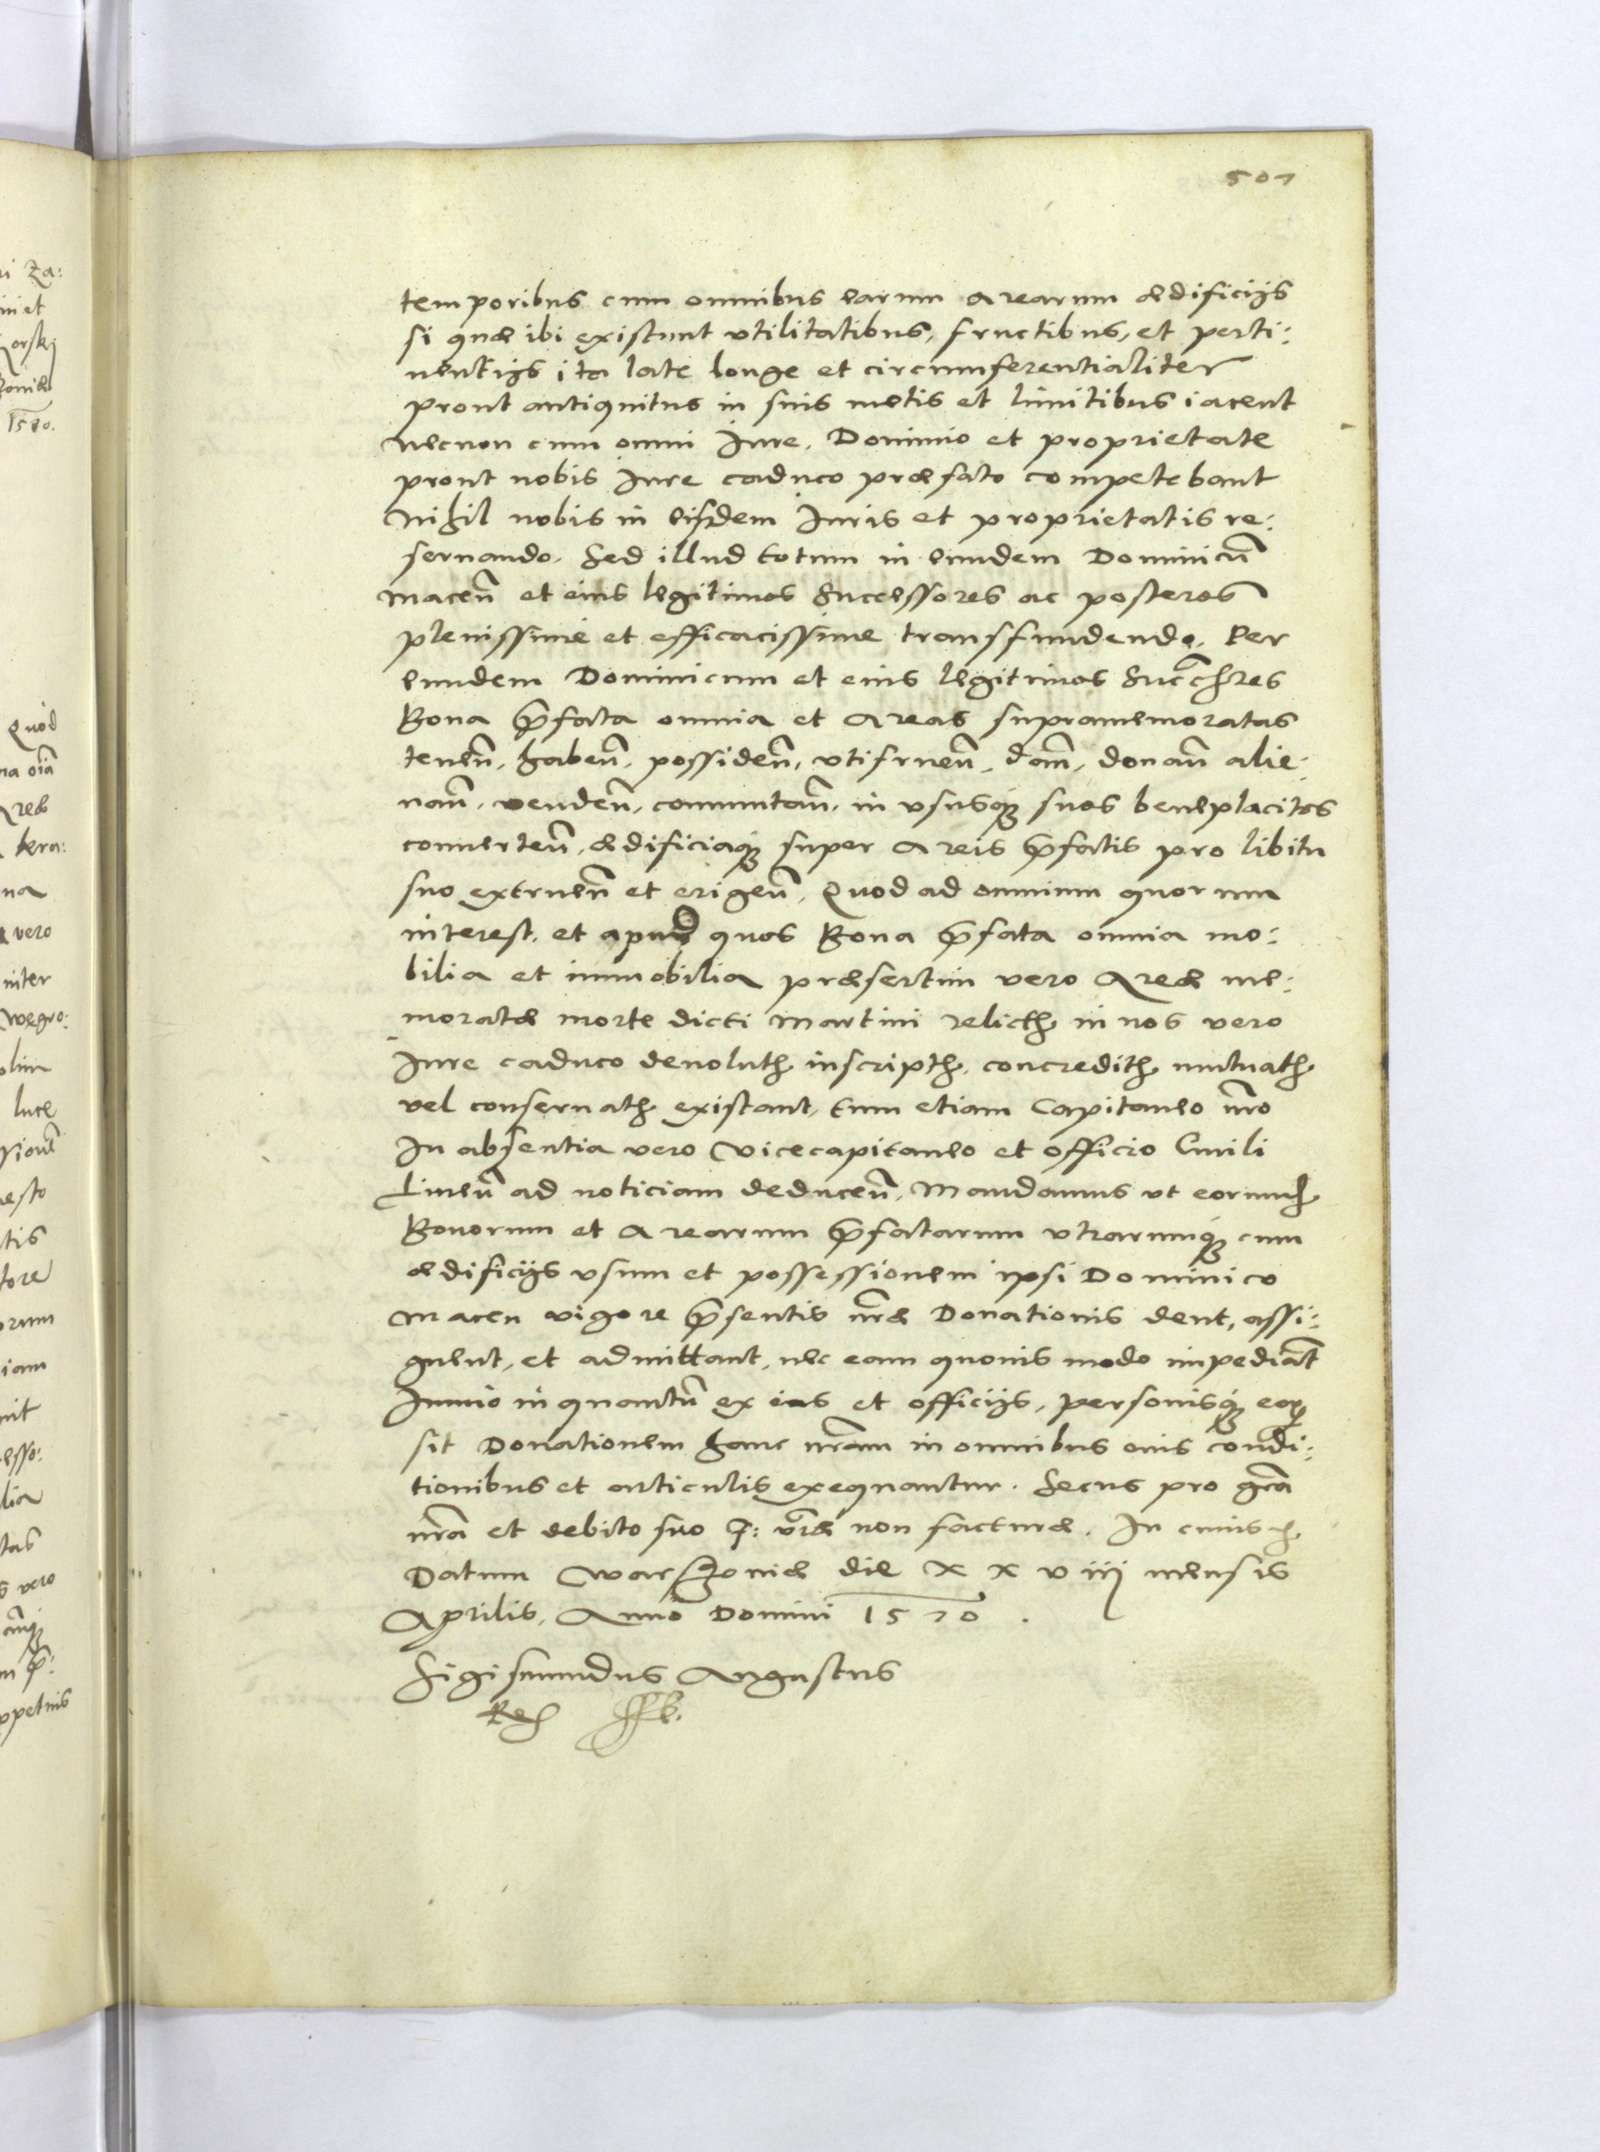 501
temporibus cum omnibus earum Arearum ædificijs
si quæ ibi existunt vtilitatibus, fructibus, et perti:
nentijs ita late longe et circumferentialiter
prout antiquitus in suis metis et limitibus iacent
necnon cum omni Iure, Dominio et proprietate
prout nobis Iure caduco præfato competebant
Nihil nobis in eisdem Iuris et proprietatis re:
seruando. Sed illud totum in eundem Dominicū
Maceū et eius legitimos Successores ac posteros
plenissime et efficacissime transfundendo. Per
eundem Dominicum et eius legitimos Succres
Bona p̄fata omnia et Areas supramemoratas
teneñ, habeñ, possideñ, vtifrueñ, dañ, donañ alie:
nañ, vendeñ, commutañ, in vsusq suos beneplacitos
conuerteñ, ædificiaq super Areis p̄fatis pro libitu
suo extrueñ et erigeñ, Quod ad omnium quorum
interest, et apud quos Bona p̄fata omnia mo:
bilia et immobilia præsertim vero Areæ me:
moratæ morte dicti Martini relicth, in nos vero
Iure caduco deuoluth, inscripth, concredith, mutuath,
vel conseruath, existant, tum etiam Capitaneo nr̄o
In absentia vero Vicecapitaneo et officio Ciuili
ad noticiam deduceñ, Mandamus vt eorumd
Bonorum et Arearum p̄fatarum vtrarumq cum
ædificijs vsum et possessionem ipsi Dominico
Macen vigore p̄sentis nr̄æ Donationis dent, assi:
gnent, et admittant, nec eam quouis modo impediāt
Immo in quantū ex eas et officijs, personisq eor
sit Donationem hanc nr̄am in omnibus eius condi:
tionibus et articulis exequantur. Secus pro gr̄a
nr̄a et debito suo f: vr̄æ non facturæ. In cuius
Datum Warszouiæ die xxviij mensis
Aprilis, Anno Domini 1570.
Sigismundus Augustus
Rex

Za:
et
orskj
1570.
Quod
na oīa
bera:
na
vero
niter
Wegro:
olim
luce
sionē
esto
tis
tore
orum
iam
nit
esso:
lia
tas
s vero
m p̄:
petuis